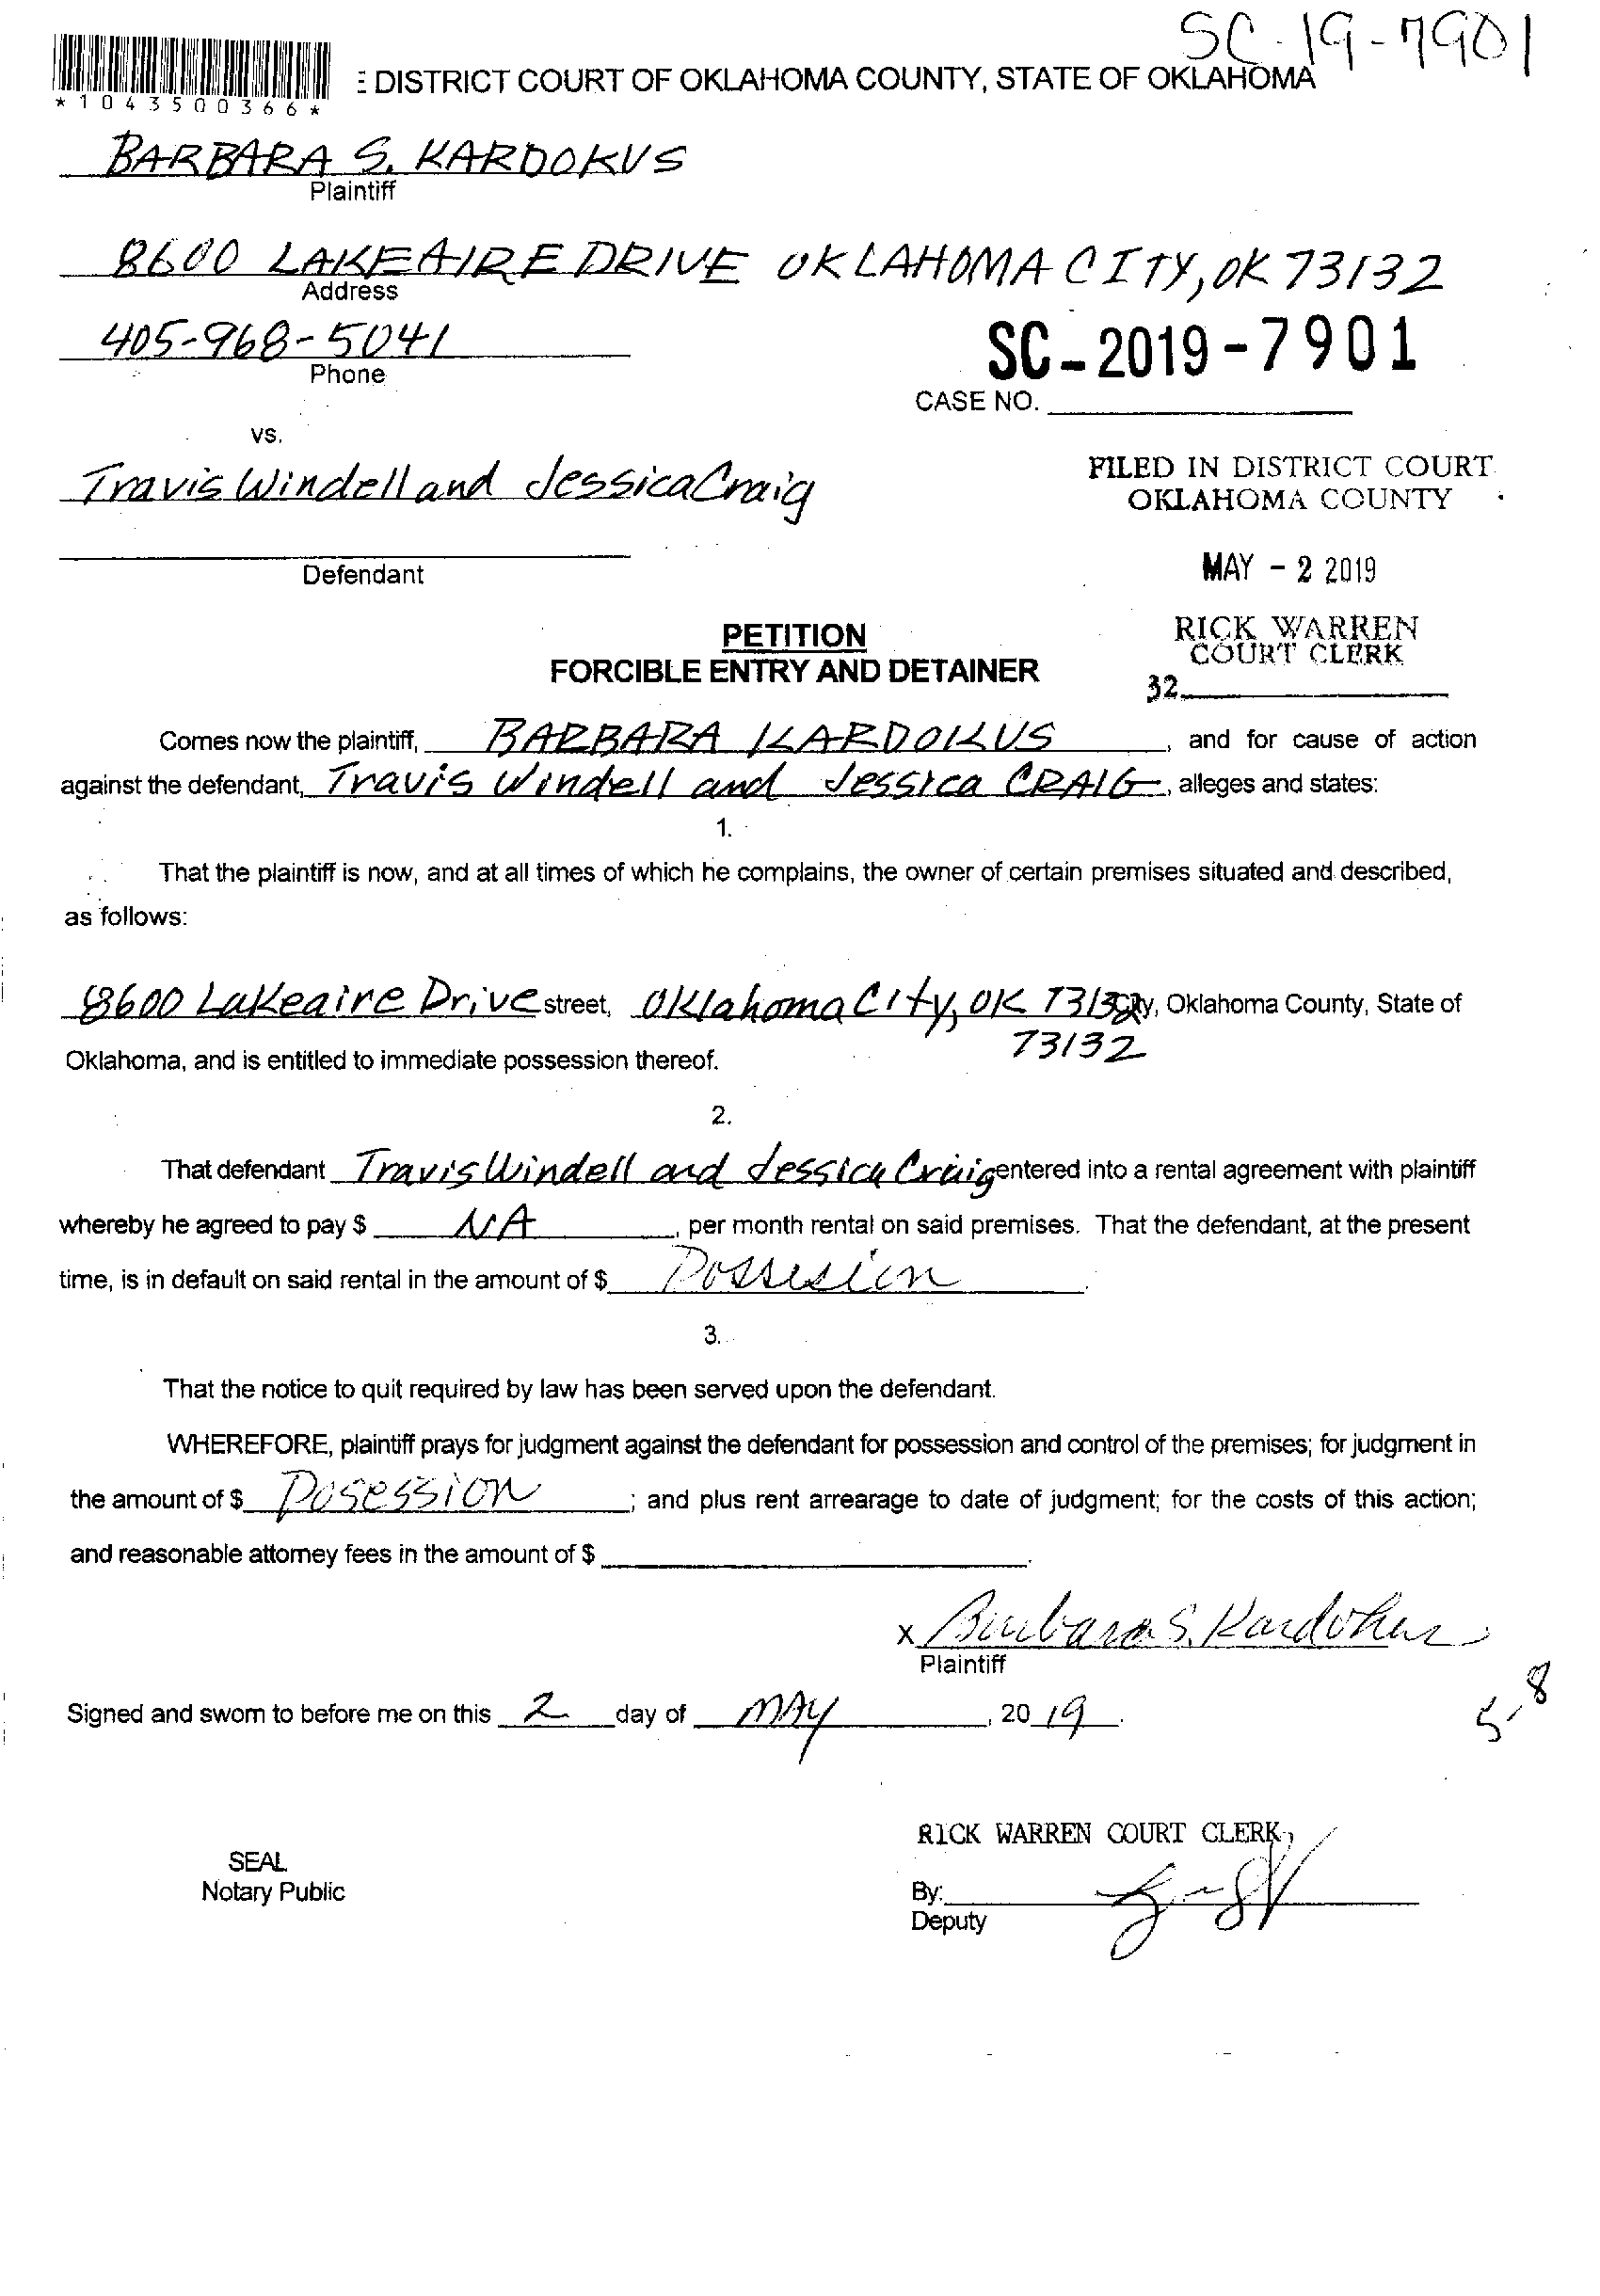 SC-19-7901
*1043500366*
: DISTRICT COURT OF OKLAHOMA COUNTY, STATE OF OKLAHOMA
BARBARA S. KARDOKUS
Plaintiff
8600 LAKEAIRE DRIVE OKLAHOMA CITY, OK 73132
Address
405-968-5041
Phone
SC-2019-7901
CASE NO.
vs.
Travis Windell and Jessica Craig
Defendant
FILED IN DISTRICT COURT
OKLAHOMA COUNTY
MAY - 2 2019
RICK WARREN
COURT CLERK
32
PETITION
FORCIBLE ENTRY AND DETAINER
Comes now the plaintiff, BARBARA KARDOKUS, and for cause of action
against the defendant, Travis Windell and Jessica CRAIG, alleges and states:
1.
That the plaintiff is now, and at all times of which he complains, the owner of certain premises situated and described,
as follows:
8600 Lakeaire Drive street, Oklahoma City, OK 73132 City, Oklahoma County, State of
73132
Oklahoma, and is entitled to immediate possession thereof.
2.
That defendant Travis Windell and Jessica Craig entered into a rental agreement with plaintiff
whereby he agreed to pay $ NA, per month rental on said premises. That the defendant, at the present
time, is in default on said rental in the amount of $ Possesion.
3.
That the notice to quit required by law has been served upon the defendant.
WHEREFORE, plaintiff prays for judgment against the defendant for possession and control of the premises; for judgment in
the amount of $ Posession; and plus rent arrearage to date of judgment; for the costs of this action;
and reasonable attorney fees in the amount of $ .
x Barbara S. Kardokus
Plaintiff
5-8
Signed and sworn to before me on this 2 day of MAY, 20 19.
RICK WARREN COURT CLERK
SEAL
Notary Public
By:
Deputy